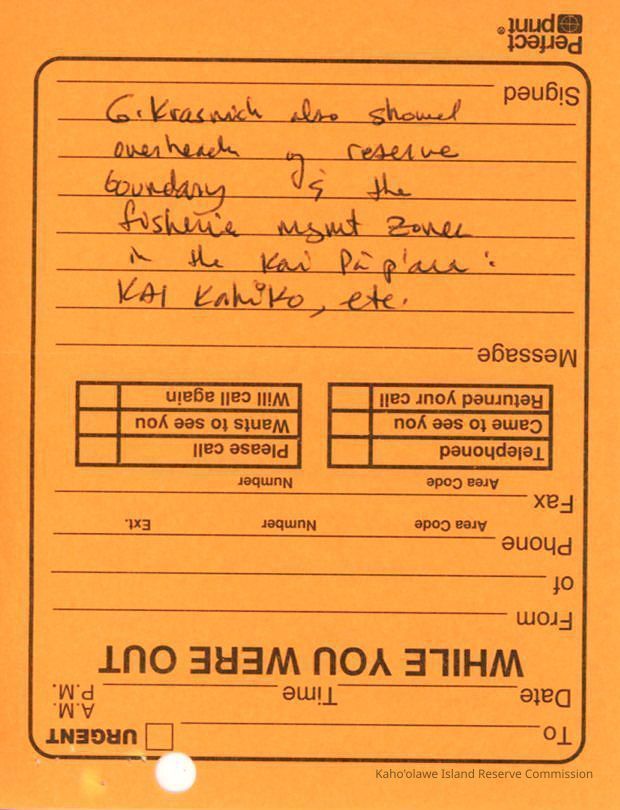 G. Krasnick also showed
overheads of reserve
boundary & the
fisherie mgmt zones
in the Kai Pāp'au :
KAI Kahiko, etc.
To
URGENT
Date
Time
A.M.
P.M.
WHILE YOU WERE OUT
From
of
Phone
Area Code Number Ext.
Fax
Area Code Number
Telephoned
Please call
Came to see you
Wants to see you
Returned your call
Will call again
Message
Signed
Perfect
print®
Kaho'olawe Island Reserve Commission